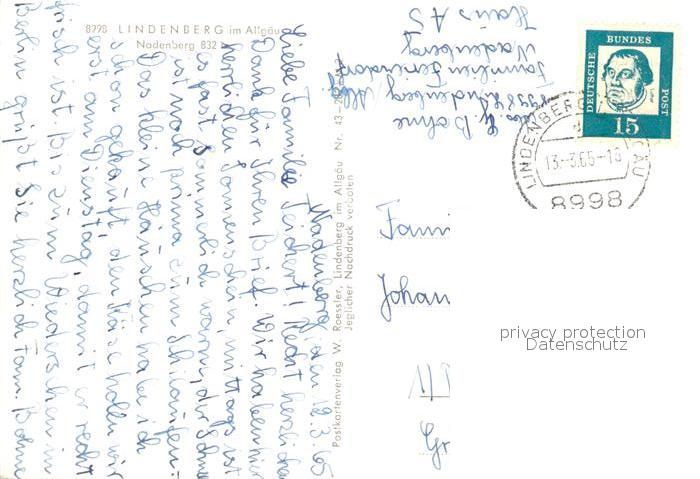 8998 LINDENBERG im Allgäu
Nadenberg 832
Nadenberg, den 12.3.65
Liebe Familie Teichert! Recht herzlichen
Dank für Ihren Brief. Wir haben hier
herrlichen Sonnenschein, mittags ist
es fast sommerlich warm, der Schnee
ist noch prima zum Schilaufen.
Das kleine Häuschen habe ich
schon gekauft, den Käse holen wir
erst am Dienstag, damit er recht
frisch ist. Bis zum Wiedersehen in
Berlin grüßt Sie herzlich Fam. Bohne
Postkartenverlag W. Roessler, Lindenberg im Allgäu Nr. 43-
Jeglicher Nachdruck verboten
Abs. G. Bohne
8998 Lindenberg Allg.
Familien Feriendorf
Nadenberg
Haus A 5
DEUTSCHE BUNDES POST
15
LINDENBERG
13.-3.65-18
8998
Fami
Johan
Gr
privacy protection
Datenschutz